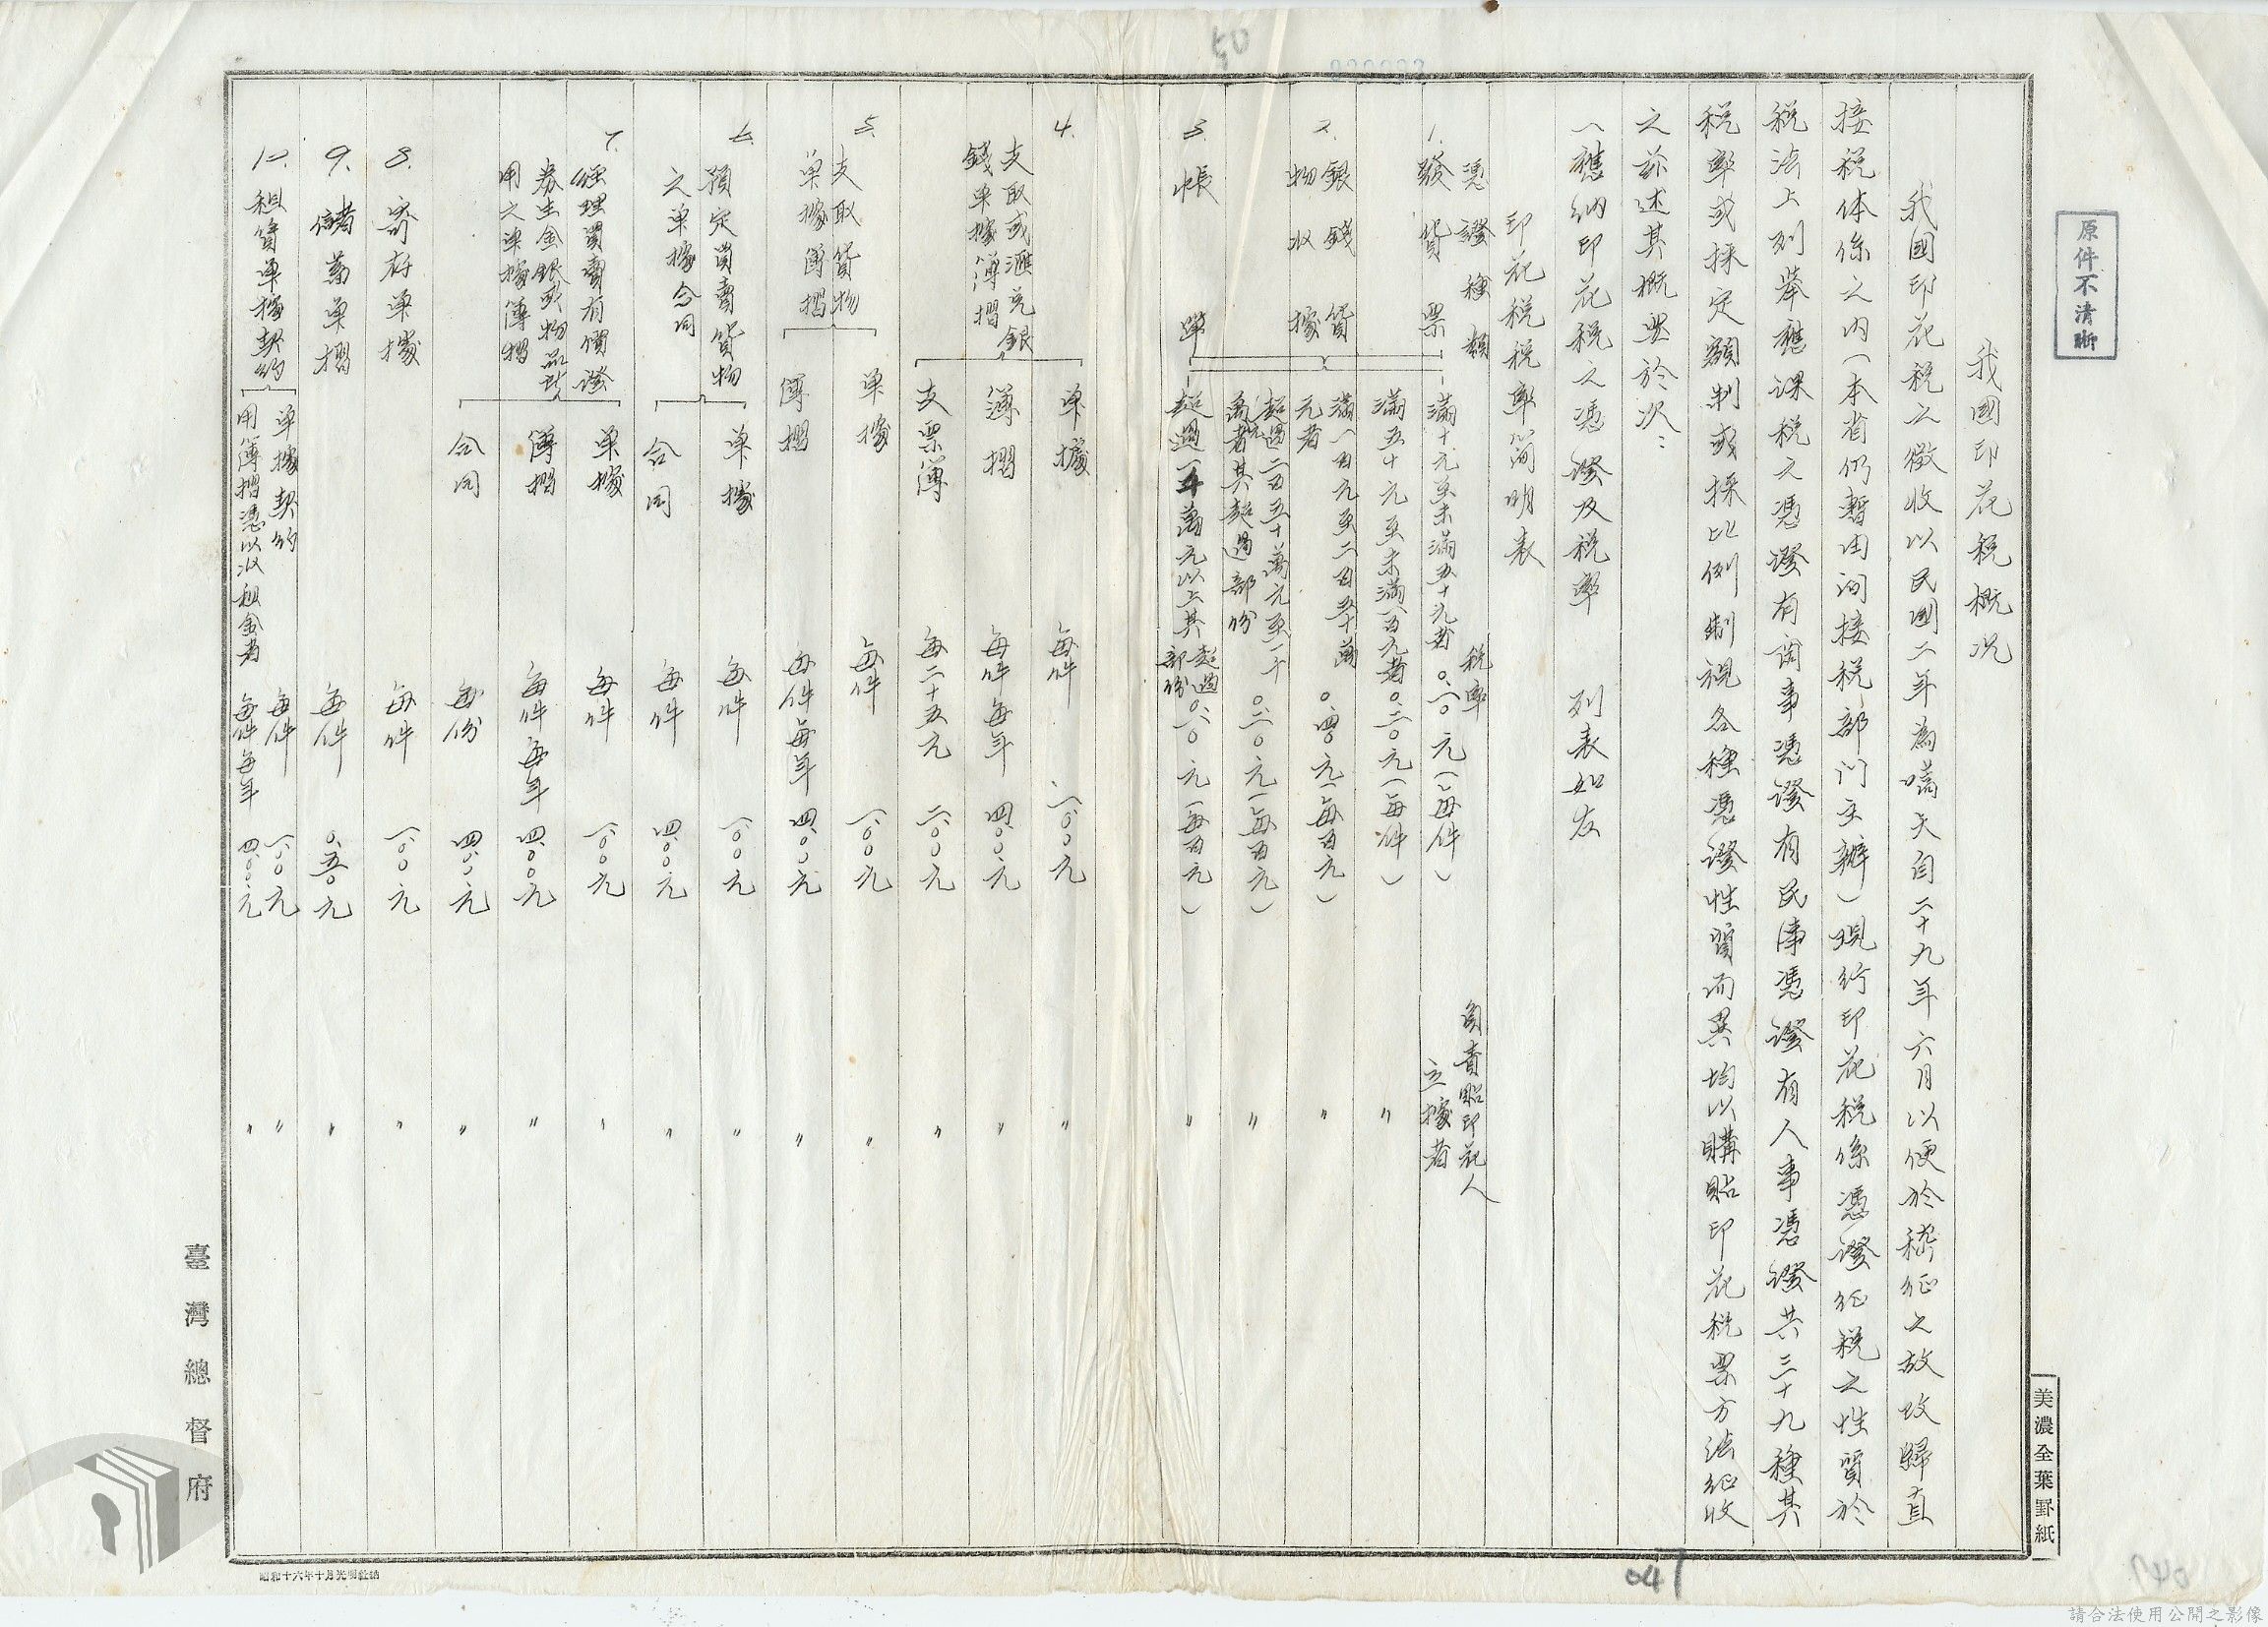 原件不清晰
我國印花稅概况
我國印花稅之徵收以民國二年為嚆矢自二十九年六月以便於稽征之故改歸直
接稅体係之内（本省仍暫由间接稅部门主辦）現行印花稅係憑證征稅之性質於
稅法上列举應課稅之憑證有商事憑證有民事憑證有人事憑證共三十九種其
稅率或採定額制或採比例制視各種憑證性質而異均以購貼印花稅票方法征收
之茲述其概畧於次：
(一)應納印花稅之憑證及稅率 列表如左
印花稅稅率簡明表
憑證種類 稅率 負責貼印花人
1. 發貨票 滿十元至未滿五十元者 0.一0元(每件) 立據者
滿五十元至未滿一百元者 0.二0元(每件) 〃
2. 銀錢貨物收據 滿一百元至二百五十萬元者 0.四0元(每百元) 〃
超過二百五十萬元至一千萬元者其超過部份 0.二0元(每百元) 〃
3. 帳單 超過一千萬元以上其超過部份 0.一0元(每百元) 〃
4. 支取或滙兌銀錢单據簿摺 单據 每件 一.00元 〃
簿摺 每件每年 四.00元 〃
支票簿 每二十五元 二.00元 〃
5. 支取貨物单據簿摺 单據 每件 一.00元 〃
簿摺 每件每年 四.00元 〃
6. 預定買賣貨物之单據合同 单據 每件 一.00元 〃
合同 每件 四.00元 〃
7. 經理買賣有價證券生金銀或物品所用之单據簿摺 单據 每件 一.00元 〃
簿摺 每件每年 四.00元 〃
合同 每份 四.00元 〃
8. 寄存单據 每件 一.00元 〃
9. 儲蓄单摺 每件 0.五0元 〃
10. 租賃单據契約 单據契約 每件 一.00元 〃
用簿摺憑以收租金者 每件每年 四.00元 〃
臺灣總督府
美濃全葉罫紙
昭和十六年十月光明社納
50
047
請合法使用公開之影像